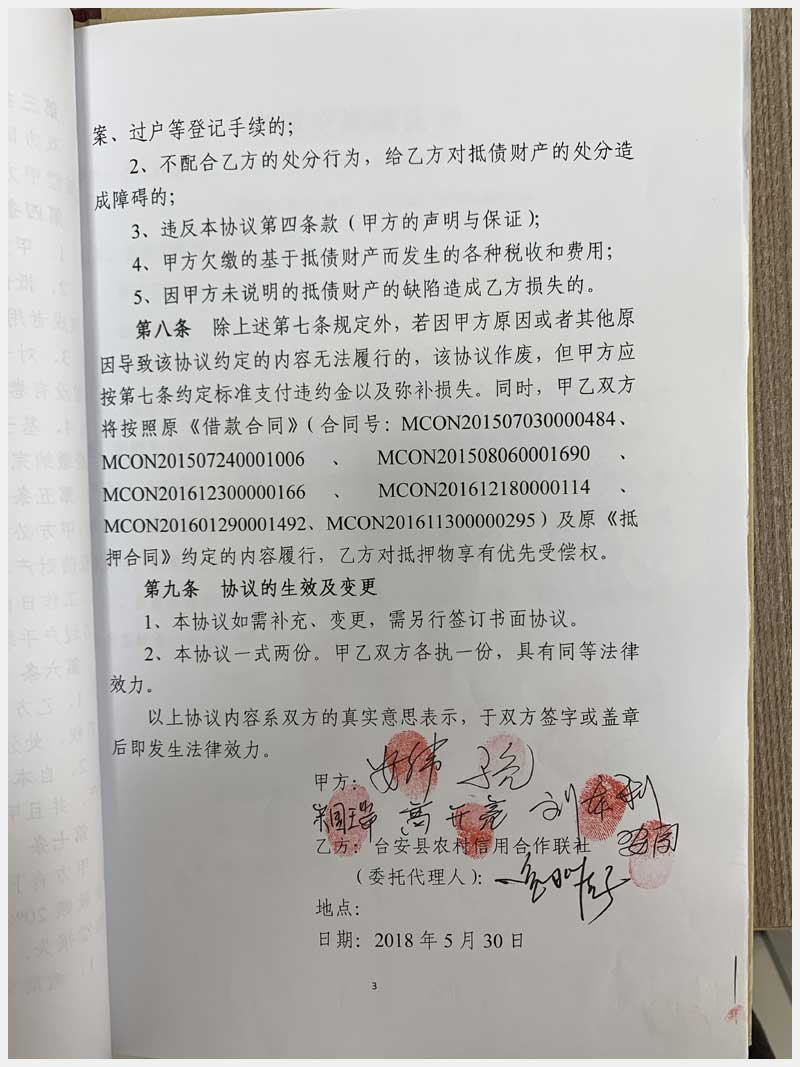 案、过户等登记手续的;
2、不配合乙方的处分行为，给乙方对抵债财产的处分造
成障碍的;
3、违反本协议第四条款（甲方的声明与保证）;
4、甲方欠缴的基于抵债财产而发生的各种税收和费用;
5、因甲方未说明的抵债财产的缺陷造成乙方损失的。
第八条 除上述第七条规定外，若因甲方原因或者其他原
因导致该协议约定的内容无法履行的，该协议作废，但甲方应
按第七条约定标准支付违约金以及弥补损失。同时，甲乙双方
将按照原《借款合同》（合同号：MCON201507030000484、
MCON201507240001006 、 MCON201508060001690 、
MCON201612300000166 、 MCON201612180000114 、
MCON201601290001492、MCON201611300000295）及原《抵
押合同》约定的内容履行，乙方对抵押物享有优先受偿权。
第九条 协议的生效及变更
1、本协议如需补充、变更，需另行签订书面协议。
2、本协议一式两份。甲乙双方各执一份，具有同等法律
效力。
以上协议内容系双方的真实意思表示，于双方签字或盖章
后即发生法律效力。
甲方：
高开亮
乙方：台安县农村信用合作联社
（委托代理人）：
地点：
日期：2018 年 5 月 30 日
3